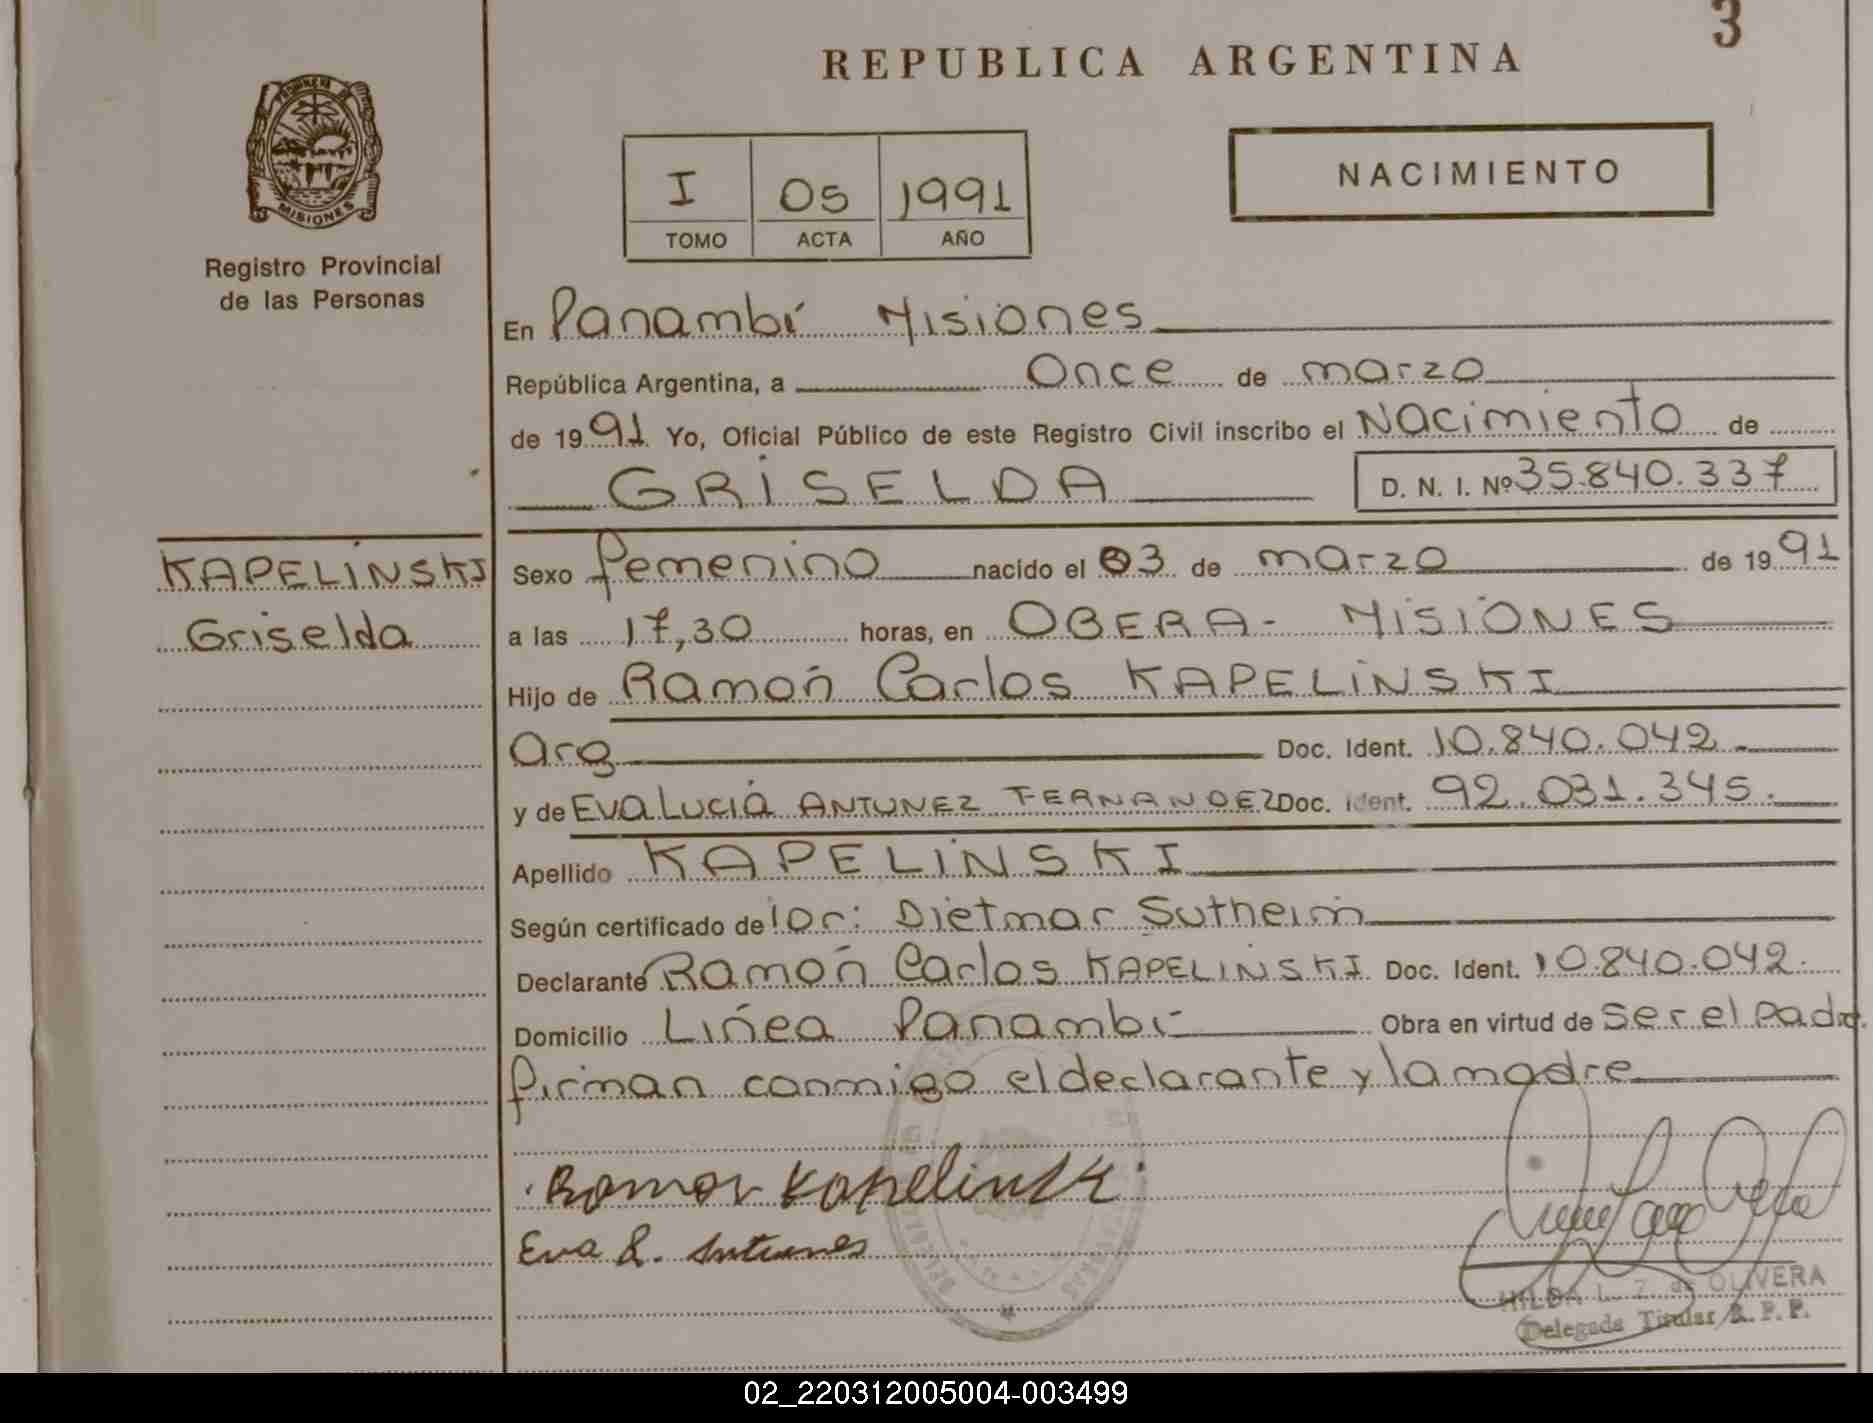 3
REPUBLICA ARGENTINA
MISIONES
Registro Provincial
de las Personas
I 05 1991
TOMO ACTA AÑO
NACIMIENTO
En Panambí Misiones
República Argentina, a Once de marzo
de 1991 Yo, Oficial Público de este Registro Civil inscribo el Nacimiento de
GRISELDA D. N. I. Nº 35.840.337
KAPELINSKI
Griselda
Sexo femenino nacido el 03 de marzo de 1991
a las 17,30 horas, en OBERA - MISIONES
Hijo de Ramón Carlos KAPELINSKI
Arg Doc. Ident. 10.840.042
y de Eva Lucia ANTUNEZ FERNANDEZ Doc. Ident. 92.031.345.
Apellido KAPELINSKI
Según certificado de Dietmar Sutheim
Declarante Ramón Carlos KAPELINSKI Doc. Ident. 10.840.042.
Domicilio Línea Panambí Obra en virtud de ser el padre.
firman conmigo el declarante y la madre
Ramon Kapelinski
Eva L. Antunes
HILDA L. Z. de OLIVERA
Delegada Titular R. P. P.
02_220312005004-003499